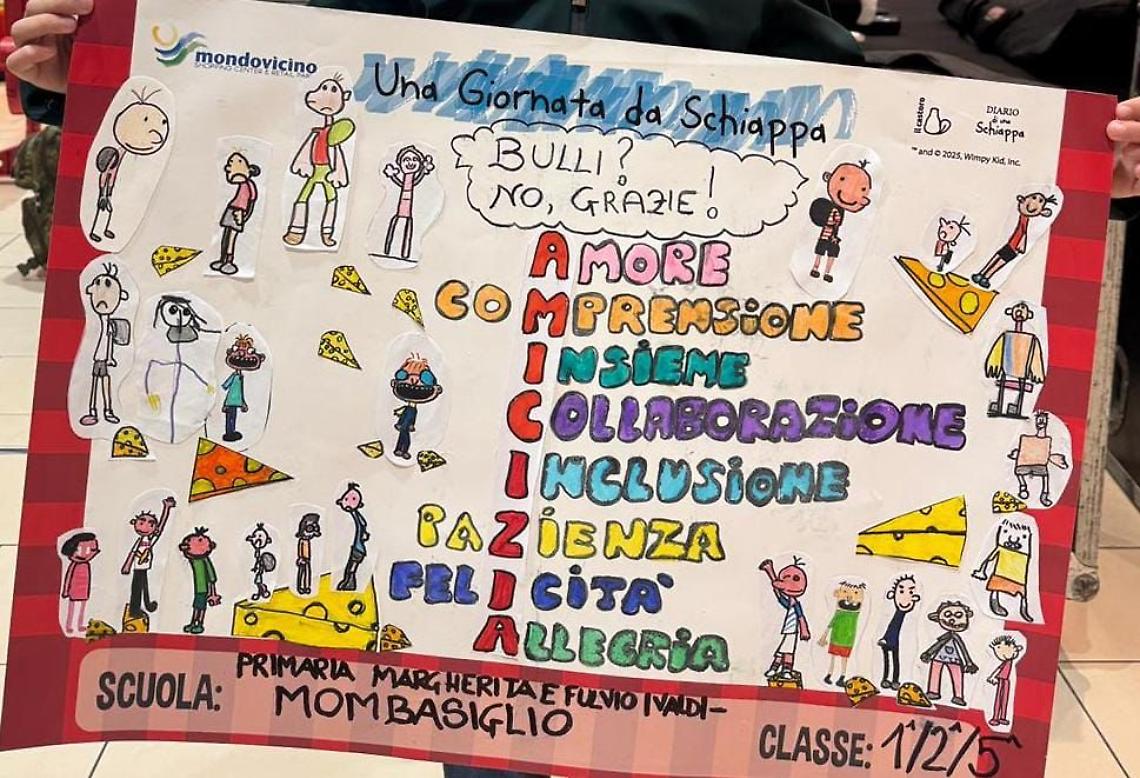 mondovicino
SHOPPING CENTER & RETAIL PARK
Una Giornata da Schiappa
il castoro
DIARIO
di una
Schiappa
™ and © 2025, Wimpy Kid, Inc.
BULLI?
NO, GRAZIE!
AMORE
COMPRENSIONE
INSIEME
COLLABORAZIONE
INCLUSIONE
PAZIENZA
FELICITÀ
ALLEGRIA
SCUOLA: PRIMARIA MARGHERITA E FULVIO IVALDI-
MOMBASIGLIO
CLASSE: 1^/2^/5^